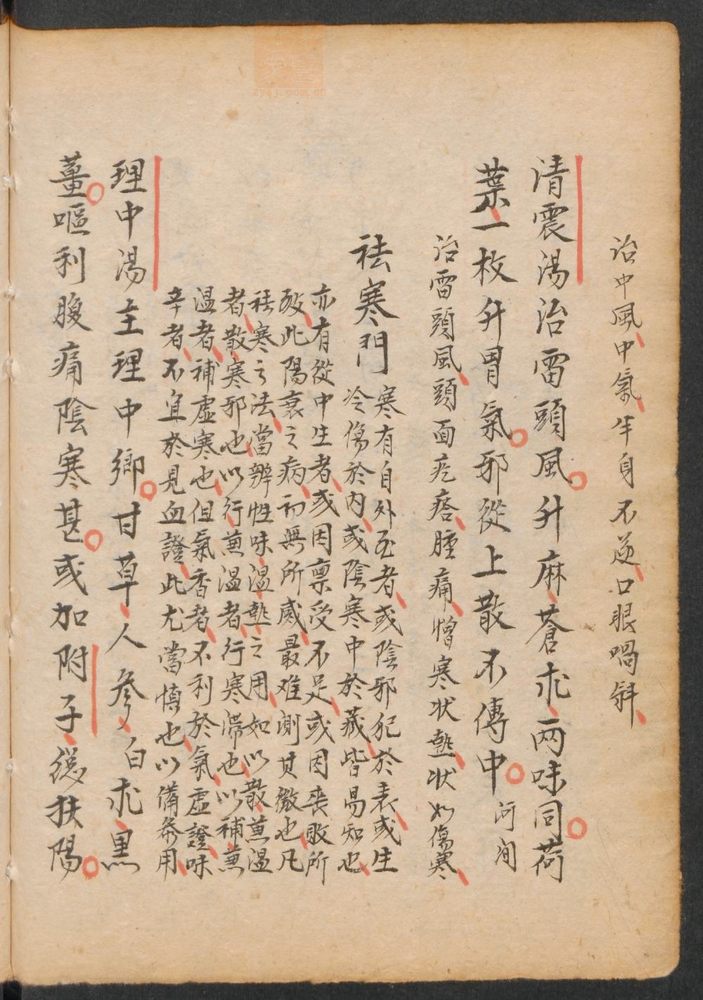 治中風、中氣、半身不遂、口眼喎斜、
清震湯治雷頭風。升麻、蒼朮、兩味同。荷
葉一枚升胃氣。邪從上散不傳中。河間
治雷頭風、頭面疙瘩、腫痛、憎寒状熱、状如傷寒、
祛寒門
寒有自外至者、或陰邪犯於表、或生
冷傷於内、或陰寒中於藏、皆易知也、
亦有從中生者、或因禀受不足、或因喪敗所
致、此陽衰之病、初無所感、最难測其微也、凡
祛寒之法、當辨性味、温熱之用、如以散蒹温
者、散寒邪也、以行蒹温者、行寒滯也、以補蒹
温者、補虚寒也、但氣香者、不利於氣虚證、味
辛者、不宜於見血證、此尤當慎也、以備叅用
理中湯主理中鄉。甘草、人參、白朮、黑
薑。嘔利腹痛陰寒甚。或加附子、總扶陽。